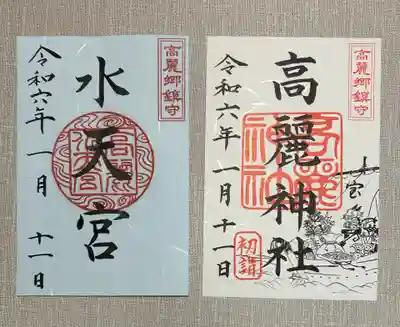 高麗郷鎮守
水天宮
令和六年
一月
十一日
高麗郷鎮守
高麗神社
令和六年
一月十一日
初詣
宝